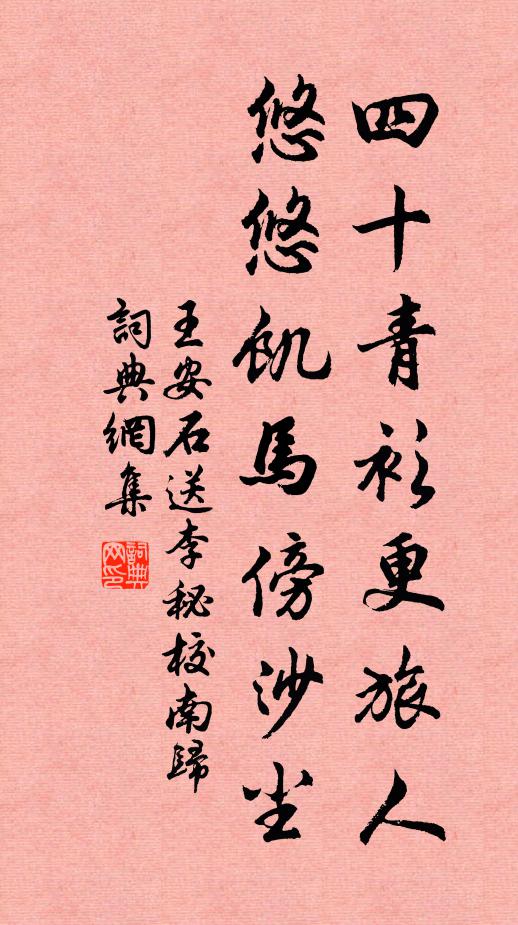 四十青衫更旅人
悠悠飢馬傍沙尘
王安石送李秘校南歸
詞典網集
詞典网印